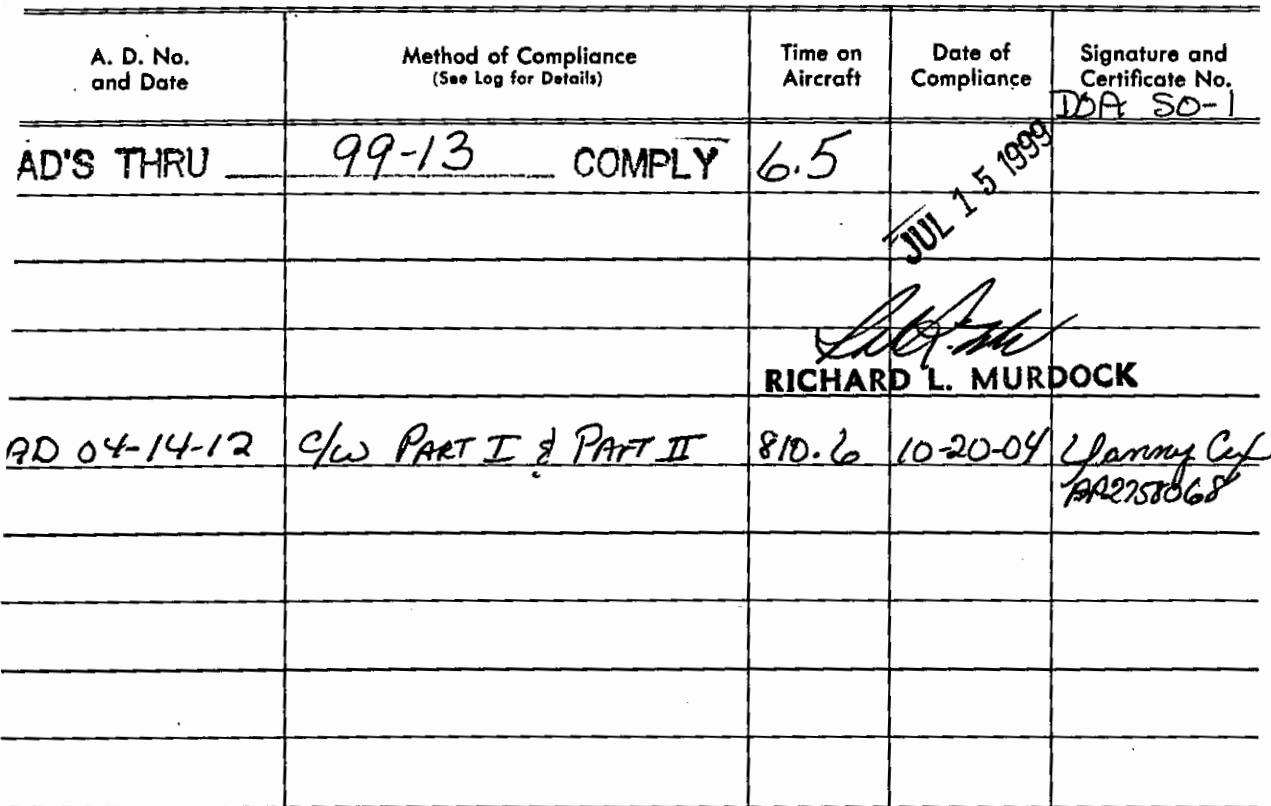 A. D. No. and Date Method of Compliance (See Log for Details) Time on Aircraft Date of Compliance Signature and Certificate No.
DOA SO-1
AD'S THRU 99-13 COMPLY 6.5 JUL 15 1999
RICHARD L. MURDOCK
AD 04-14-12 C/W PART I & PART II 810.6 10-20-04 Danny
AP2758068